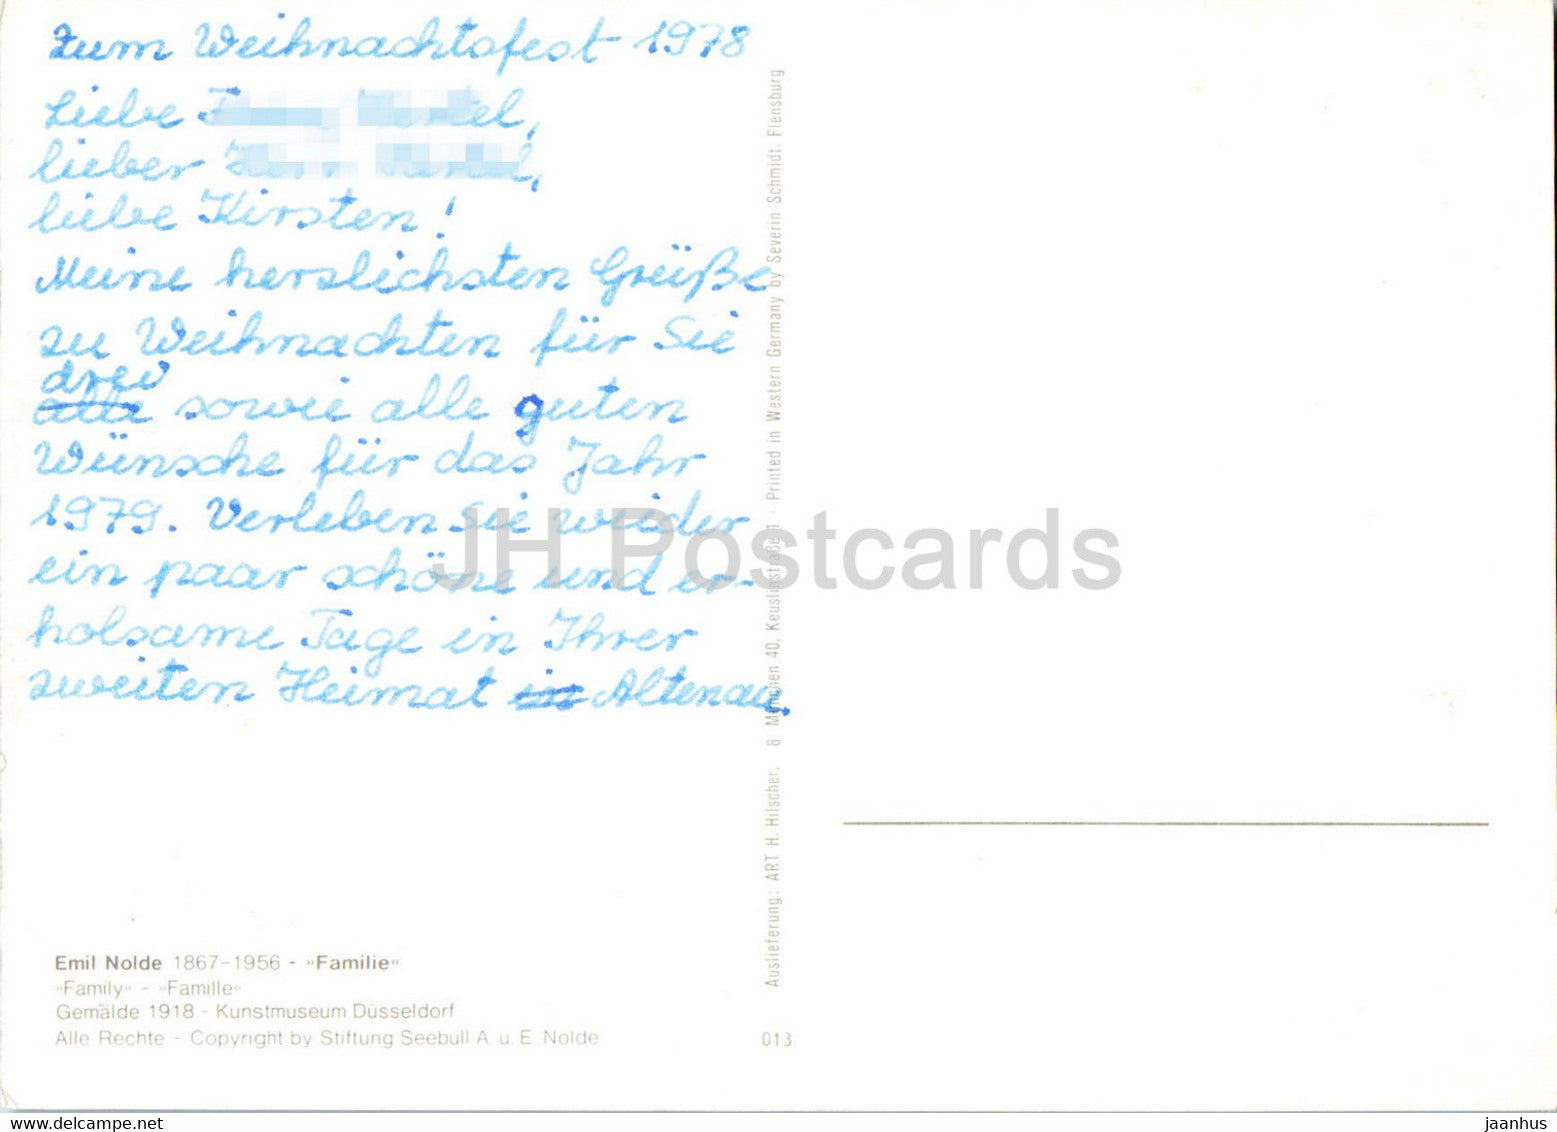 Zum Weihnachtsfest 1978
Liebe
lieber
liebe Kirsten!
Meine herzlichsten Grüße
zu Weihnachten für Sie
drei
alle sowie alle guten
Wünsche für das Jahr
1979. Verleben Sie wieder
ein paar schöne und er-
holsame Tage in Ihrer
zweiten Heimat in Altenau.
Emil Nolde 1867-1956 - »Familie«
»Family« - »Famille«
Gemälde 1918 - Kunstmuseum Düsseldorf
Alle Rechte - Copyright by Stiftung Seebüll A. u. E. Nolde
Auslieferung: ART H. Hilscher, 8 München 40, Keuslinstraße 1 · Printed in Western Germany by Severin Schmidt, Flensburg
013
JH Postcards
jaanhus